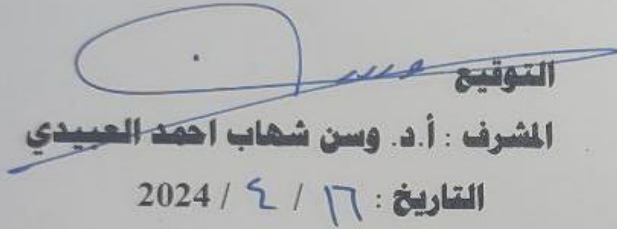 التوقيع
المشرف : أ.د. وسن شهاب احمد العبيدي
التاريخ : ١٦ / ٤ / 2024